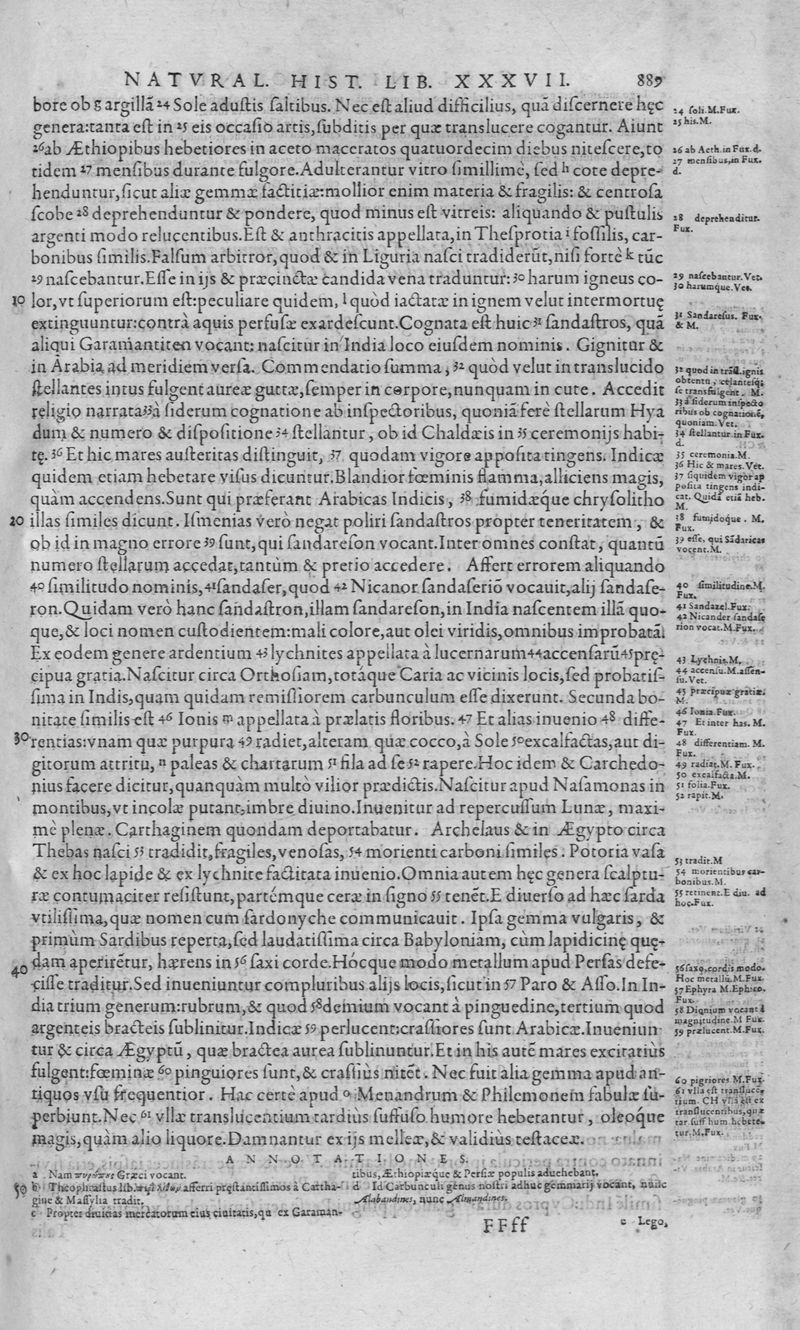 NATVRAL. HIST. LIB. XXXVII. 889
bore ob g argillã 24 Sole adustis saltibus. Nec est aliud difficilius, quã discernere hęc
genera: tanta est in 25 eis occasio artis, subditis per quæ translucere cogantur. Aiunt
26 ab Æthiopibus hebetiores in aceto maceratos quatuordecim diebus nitescere, to
tidem 27 mensibus durante fulgore. Adulterantur vitro simillimè, sed h cote depre-
henduntur, sicut aliæ gemmæ factitiæ: mollior enim materia & fragilis: & centrosa
scobe 28 deprehenduntur & pondere, quod minus est vitreis: aliquando & pustulis
argenti modo relucentibus. Est & anthracitis appellata, in Thesprotia i fossilis, car-
bonibus similis. Falsum arbitror, quod & in Liguria nasci tradiderũt, nisi fortè k tũc
29 nascebantur. Esse in ijs & præcinctæ candida vena traduntur: 30 harum igneus co-
10 lor, vt superiorum est: peculiare quidem, l quòd iactatæ in ignem velut intermortuę
extinguuntur: contrà aquis perfusæ exardescunt. Cognata est huic 31 sandastros, quã
aliqui Garamantiten vocant: nascitur in India loco eiusdem nominis. Gignitur &
in Arabia ad meridiem versa. Commendatio summa, 32 quòd velut in translucido
stellantes intus fulgent aureæ guttæ, semper in corpore, nunquam in cute. Accedit
religio narrata 33 à siderum cognatione ab inspectoribus, quoniã ferè stellarum Hya
dum & numero & dispositione 34 stellantur, ob id Chaldæis in 35 ceremonijs habi-
tę. 36 Et hic mares austeritas distinguit, 37 quodam vigore apposita tingens. Indicæ
quidem etiam hebetare visus dicuntur. Blandior fœminis flamma, alliciens magis,
quàm accendens. Sunt qui præferant Arabicas Indicis, 38 fumidæque chrysolitho
20 illas similes dicunt. Ismenias verò negat poliri sandastros propter teneritatem, &
ob id in magno errore 39 sunt, qui sandareson vocant. Inter omnes constat, quantũ
numero stellarum accedat, tantùm & pretio accedere. Affert errorem aliquando
40 similitudo nominis, 41 sandaser, quod 42 Nicanor sandaseriõ vocauit, alij sandase-
ron. Quidam verò hanc sandastron, illam sandareson, in India nascentem illã quo-
que, & loci nomen custodientem: mali colore, aut olei viridis, omnibus improbatã.
Ex eodem genere ardentium 43 lychnites appellata à lucernarum 44 accensarũ 45 prę-
cipua gratia. Nascitur circa Orthosiam, totáque Caria ac vicinis locis, sed probatis-
sima in Indis, quam quidam remissiorem carbunculum esse dixerunt. Secunda bo-
nitate similis est 46 Ionis m appellata à prælatis floribus. 47 Et alias inuenio 48 diffe-
30 rentias: vnam quæ purpura 49 radiet, alteram quæ cocco, à Sole 50 excalfactas, aut di-
gitorum attritu, n paleas & chartarum 51 fila ad se 52 rapere. Hoc idem & Carchedo-
nius facere dicitur, quanquàm multò vilior prædictis. Nascitur apud Nasamonas in
montibus, vt incolæ putant, imbre diuino. Inuenitur ad repercussum Lunæ, maxi-
mè plenæ. Carthaginem quondam deportabatur. Archelaus & in Ægypto circa
Thebas nasci 53 tradidit, fragiles, venosas, 54 morienti carboni similes. Potoria vasa
& ex hoc lapide & ex lychnite factitata inuenio. Omnia autem hęc genera scalptu-
ræ contumaciter resistunt, partémque ceræ in signo 55 tenẽt. E diuerso ad hæc sarda
vtilissima, quæ nomen cum sardonyche communicauit. Ipsa gemma vulgaris, &
primùm Sardibus reperta, sed laudatissima circa Babyloniam, cùm lapidicinę quę-
40 dam aperirẽtur, hærens in 56 saxi corde. Hócque modo metallum apud Persas defe-
cisse traditur. Sed inueniuntur compluribus alijs locis, sicut in 57 Paro & Asso. In In-
dia trium generum: rubrum, & quod 58 demium vocant à pinguedine, tertium quod
argenteis bracteis sublinitur. Indicæ 59 perlucent: crassiores sunt Arabicæ. Inueniun-
tur & circa Ægyptũ, quæ bractea aurea sublinuntur. Et in his autẽ mares excitatiùs
fulgent: fœminæ 60 pinguiores sunt, & crassiùs nitẽt. Nec fuit alia gemma apud an-
tiquos vsu frequentior. Hac certè apud o Menandrum & Philemonem fabulæ su-
perbiunt. Nec 61 vllæ translucentium tardiùs suffuso humore hebetantur, oleoque
magis, quàm alio liquore. Damnantur ex ijs melleæ, & validiùs testaceæ.
ANNOTATIONES.
a Nam Græci vocant.
50 b Theophrastus lib. afferri pręstantissimos à Cartha-
gine & Massylia tradit.
c Propter diuitias mercatorum eius ciuitatis, qu ex Garaman-
tibus, Æthiopiæque & Persiæ populis aduehebant.
d Id Carbunculi genus nostri adhuc gemmarij vocant, nunc
Alabandines, nunc Almandines.
FFff
e Lego,
24 soli. M. Fux.
25 his. M.
26 ab Aeth. in Fux. d.
27 mensibus, in Fux.
d.
28 deprehenditur.
Fux.
29 nascebantur. Vet.
30 harumque. Vet.
31 Sandaresus. Fux.
& M.
32 quod in trãsl. ignis
obtentu, celantesq;
se transfulgent. M.
33 à siderum inspecto
ribus ob cognationẽ,
quoniam. Vet.
34 stellantur. in Fux.
d.
35 ceremonia. M.
36 Hic & mares. Vet.
37 siquidem vigor ap
posita tingens indi-
cat. Quidã etiã heb.
M.
38 fumidoque. M.
Fux.
39 esse, qui Sãdaricas
vocent. M.
40 similitudine. M.
Fux.
41 Sandazel. Fux.
42 Nicander sandase
rion vocat. M. Fux.
43 Lychnis. M.
44 accensu. M. assen-
su. Vet.
45 præcipuæ gratiæ.
M.
46 Ionia. Fux.
47 Et inter has. M.
Fux.
48 differentiam. M.
Fux.
49 radiat. M. Fux.
50 excalfacta. M.
51 folia. Fux.
52 rapit. M.
53 tradit. M
54 morientibus car-
bonibus. M.
55 retinent. E diu. ad
hoc. Fux.
56 saxo, cordis modo.
Hoc metallũ. M. Fux
57 Ephyra M. Ephiro.
Fux.
58 Dionium vocant à
magnitudine. M Fux.
59 prælucent. M. Fux.
60 pigriores M. Fux.
61 vlla est transluce-
tium. CH vlla est ex
translucentibus, quæ
tar suff hum. hebete-
tur. M. Fux.